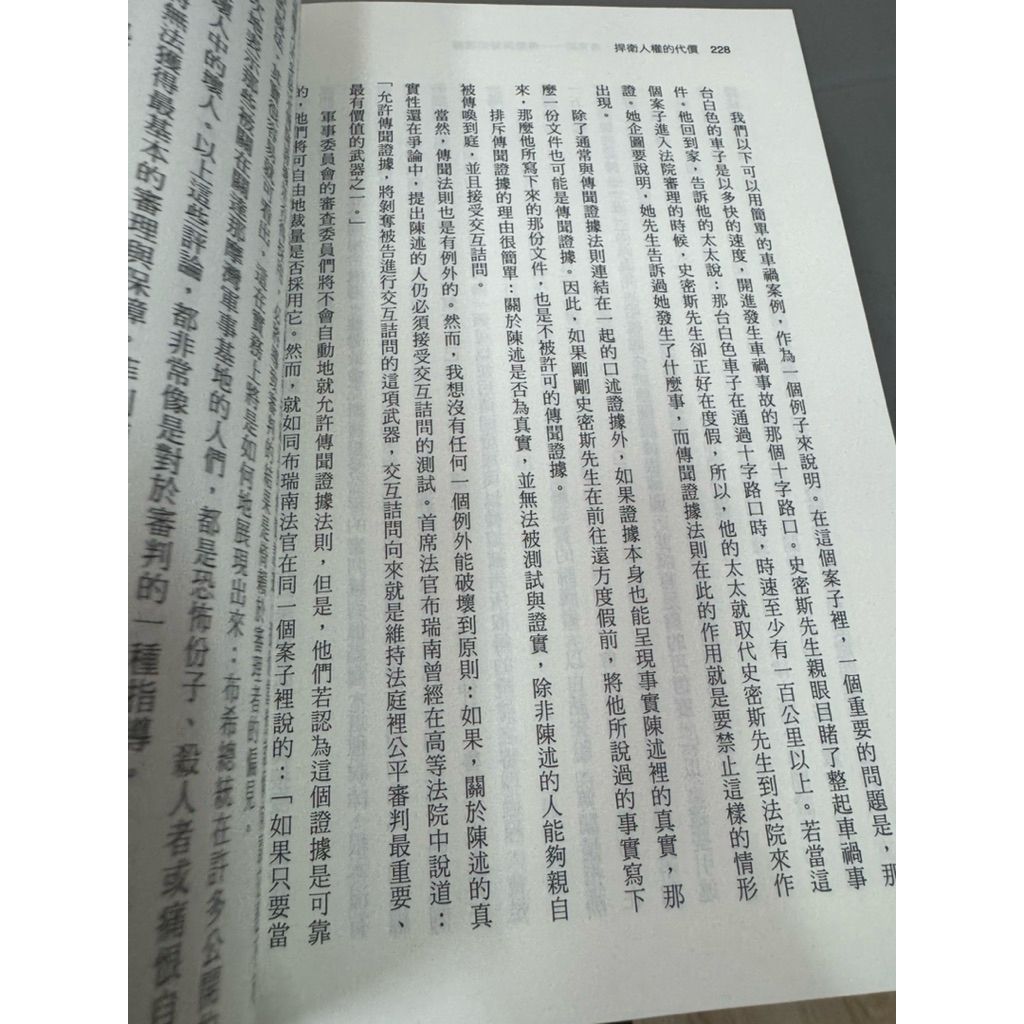 捍衛人權的代價 228
我們以下可以用簡單的車禍案例，作為一個例子來說明。在這個案子裡，一個重要的問題是，那
台白色的車子是以多快的速度，開進發生車禍事故的那個十字路口。史密斯先生親眼目睹了整起車禍事
件。他回到家，告訴他的太太說：那台白色車子在通過十字路口時，時速至少有一百公里以上。若當這
個案子進入法院審理的時候，史密斯先生卻正好在度假，所以，他的太太就取代史密斯先生到法院來作
證。她企圖要說明，她先生告訴過她發生了什麼事，而傳聞證據法則在此的作用就是要禁止這樣的情形
出現。
除了通常與傳聞證據法則連結在一起的口述證據外，如果證據本身也能呈現事實陳述裡的真實，那
麼一份文件也可能是傳聞證據。因此，如果剛剛史密斯先生在前往遠方度假前，將他所說過的事實寫下
來，那麼他所寫下來的那份文件，也是不被許可的傳聞證據。
排斥傳聞證據的理由很簡單：關於陳述是否為真實，並無法被測試與證實，除非陳述的人能夠親自
被傳喚到庭，並且接受交互詰問。
當然，傳聞法則也是有例外的。然而，我想沒有任何一個例外能破壞到原則：如果，關於陳述的真
實性還在爭論中，提出陳述的人仍必須接受交互詰問的測試。首席法官布瑞南曾經在高等法院中說道：
「允許傳聞證據，將剝奪被告進行交互詰問的這項武器，交互詰問向來就是維持法庭裡公平審判最重要、
最有價值的武器之一。」
軍事委員會的審查委員們將不會自動地就允許傳聞證據法則，但是，他們若認為這個證據是可靠
的，他們將可自由地裁量是否採用它。然而，就如同布瑞南法官在同一個案子裡說的：「如果只要當
那些被關在關達那摩灣軍事基地的人們，都是恐怖份子、殺人者或痛恨自
壞人中的壞人。以上這些評論，都非常像是對於審判的一種指導。
無法獲得最基本的審理與保障。